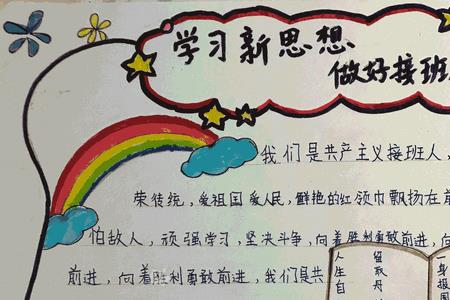 学习新思想
做好接班
我们是共产主义接班人，
荣传统，爱祖国爱人民，鲜艳的红领巾飘扬在前
怕敌人，顽强学习，坚决斗争，向着胜利勇敢前进，向
前进，向着胜利勇敢前进，我们是共
人生自
留取丹
一身报国